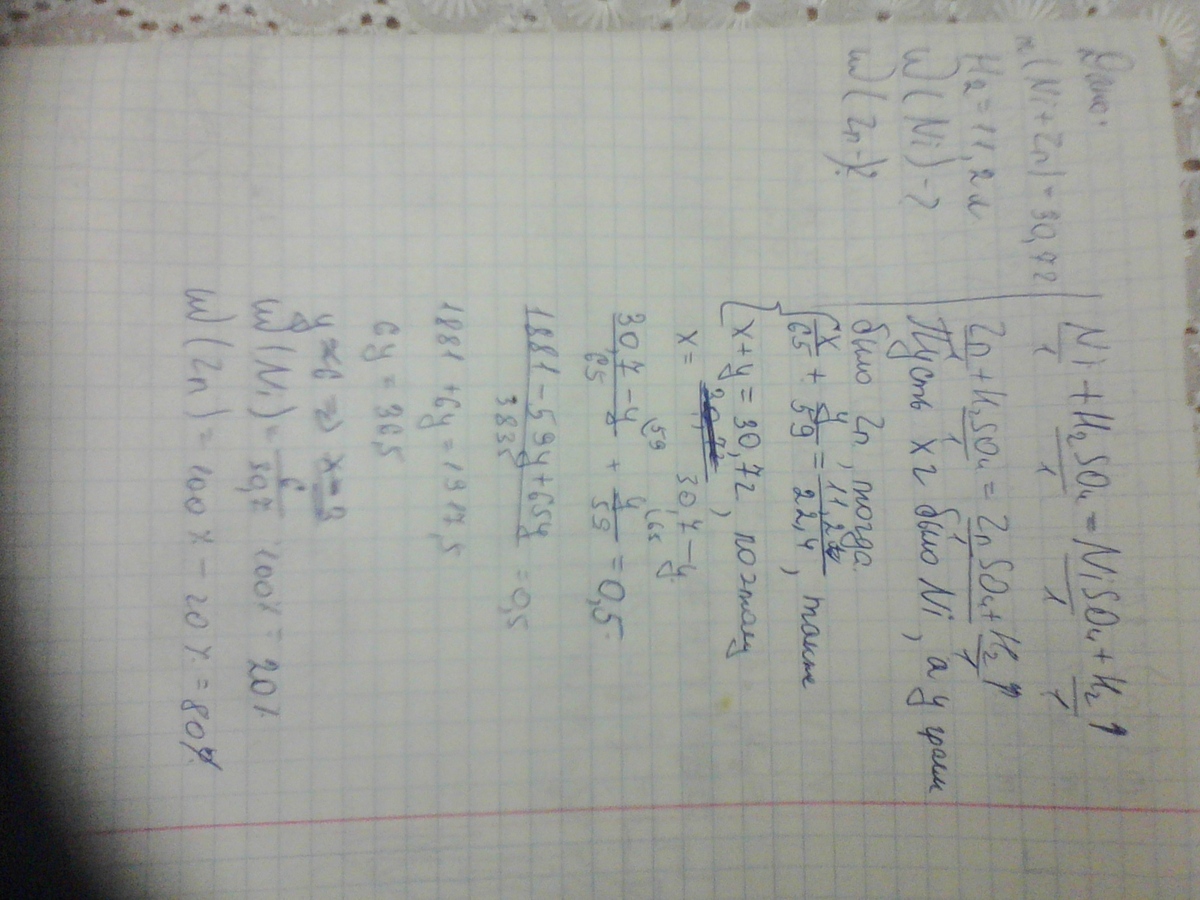 Дано:
m(Ni+Zn)=30,7г
H₂=11,2л
W(Ni)-?
W(Zn)-?
Ni+H₂SO₄=NiSO₄+H₂↑
1 1 1 1
Zn+H₂SO₄=ZnSO₄+H₂↑
1 1 1 1
Пусть x г было Ni, а y грамм
было Zn, тогда:
x/65 + y/59 = 11,2/22,4, также
x+y=30,7г, поэтому
x= 30,7-y
(30,7-y)/65 + y/59 = 0,5
(1881-59y+65y)/3835 = 0,5
1881+6y=1917,5
6y=36,5
y=6 =>
W(Ni)= 6/30,7 · 100% = 20%
W(Zn)=100%-20%=80%